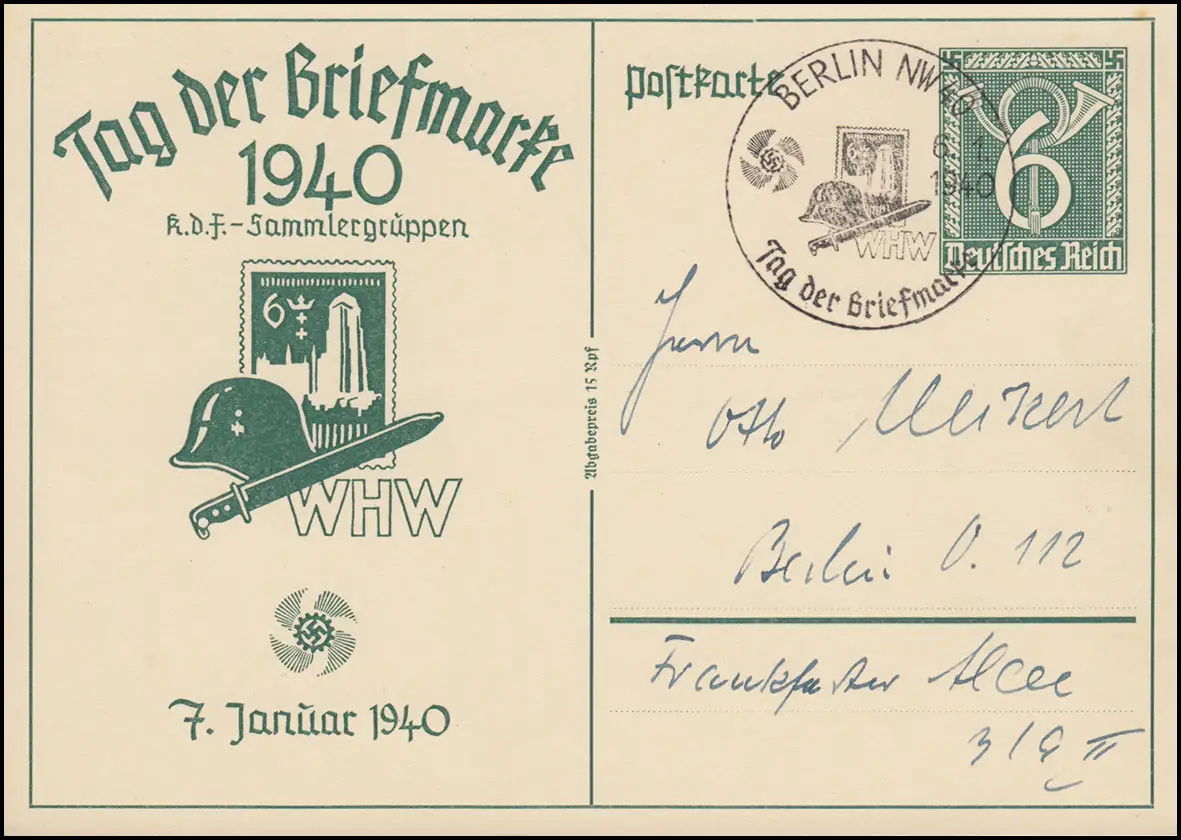 Tag der Briefmarke
1940
K.d.F.-Sammlergruppen
6
WHW
7. Januar 1940
Abgabepreis 15 Rpf
Postkarte
BERLIN NW 40
1940
WHW
Tag der Briefmarke
6
Deutsches Reich
Herrn
Otto
Berlin O. 112
Frankfurter Allee